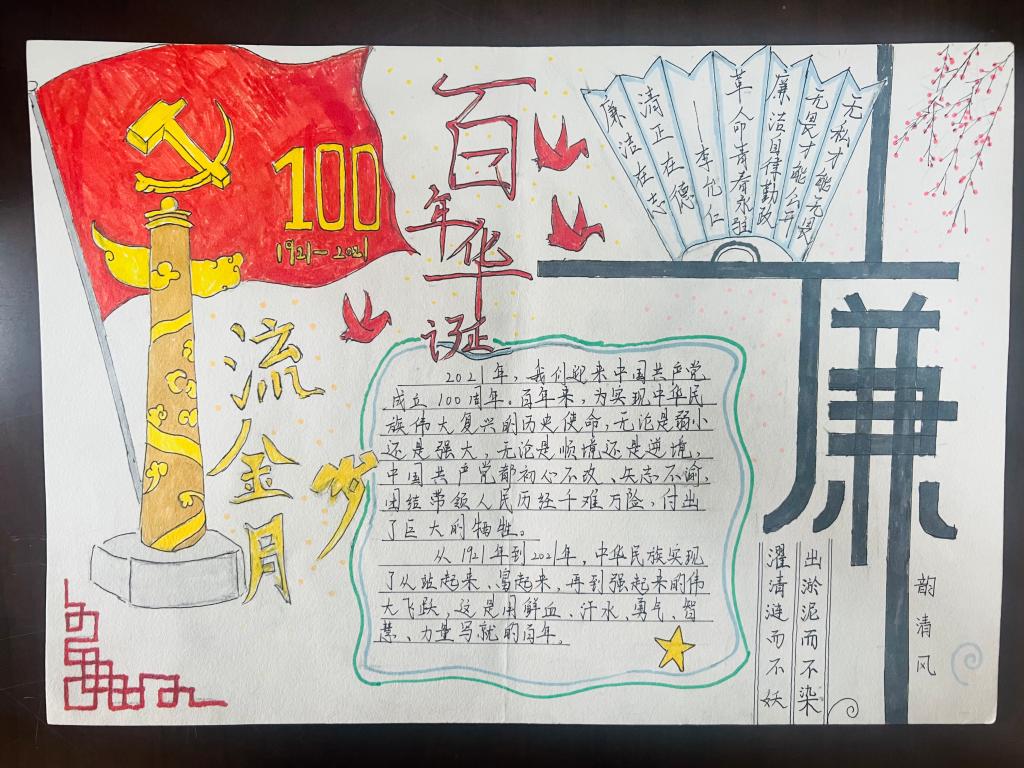 100
1921-2021
百
年华
诞
流金岁月
无私才能无畏
无畏才能公开
廉洁自律勤政
革命青春永驻
——李忆仁
清正在德
廉洁在志
2021年，我们迎来中国共产党
成立100周年。百年来，为实现中华民
族伟大复兴的历史使命，无论是弱小
还是强大，无论是顺境还是逆境，
中国共产党都初心不改、矢志不渝，
团结带领人民历经千难万险，付出
了巨大的牺牲。
从1921年到2021年，中华民族实现
了从站起来、富起来、再到强起来的伟
大飞跃，这是用鲜血、汗水、勇气、智
慧、力量写就的百年。
廉
韵清风
出淤泥而不染
濯清涟而不妖